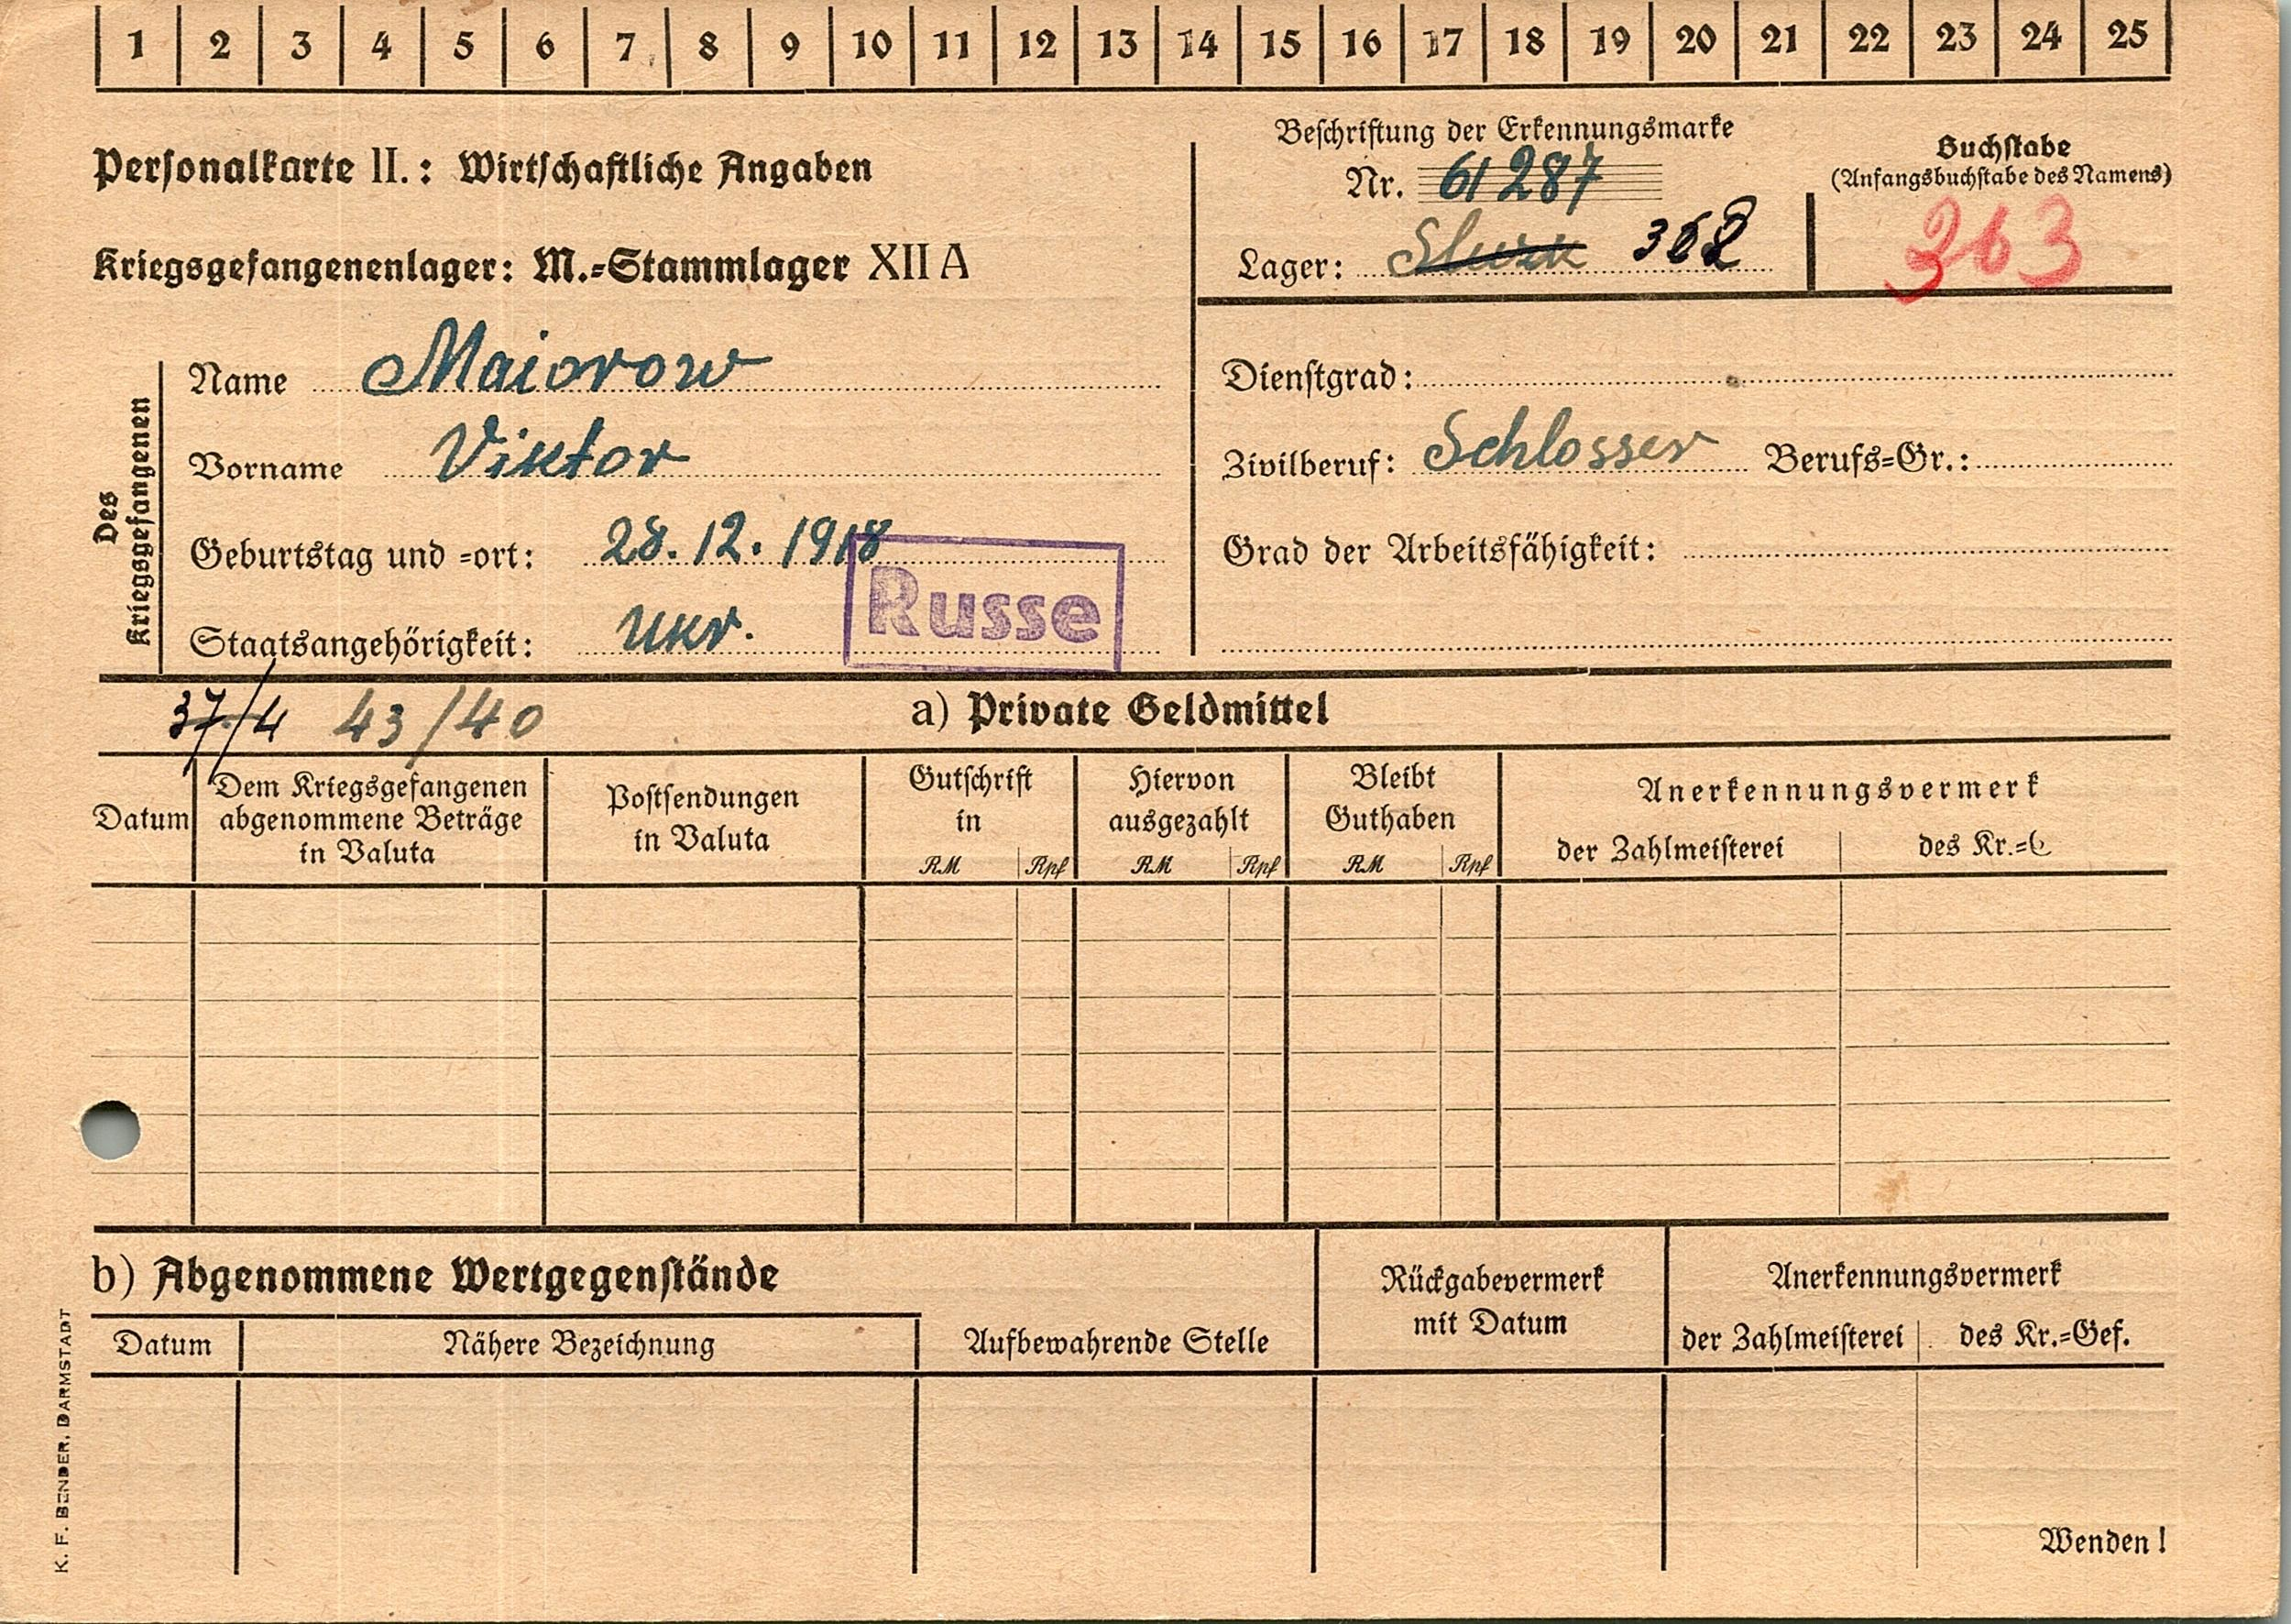 1 2 3 4 5 6 7 8 9 10 11 12 13 14 15 16 17 18 19 20 21 22 23 24 25
Personalkarte II.: Wirtschaftliche Angaben
Kriegsgefangenenlager: M.-Stammlager XII A
Beschriftung der Erkennungsmarke
Nr. 61287
Lager: 362
Buchstabe
(Anfangsbuchstabe des Namens)
363
Des
Kriegsgefangenen
Name Maiorow
Vorname Viktor
Geburtstag und =ort: 28.12.1918
Staatsangehörigkeit: Ukr.
Russe
Dienstgrad:
Zivilberuf: Schlosser Berufs=Gr.:
Grad der Arbeitsfähigkeit:
37/4 43/40
a) Private Geldmittel
Datum
Dem Kriegsgefangenen
abgenommene Beträge
in Valuta
Postsendungen
in Valuta
Gutschrift
in
RM Rpf
Hiervon
ausgezahlt
RM Rpf
Bleibt
Guthaben
RM Rpf
Anerkennungsvermerk
der Zahlmeisterei des Kr.=G
b) Abgenommene Wertgegenstände
Datum Nähere Bezeichnung Aufbewahrende Stelle
Rückgabevermerk
mit Datum
Anerkennungsvermerk
der Zahlmeisterei des Kr.=Gef.
Wenden!
K. F. BENDER, DARMSTADT